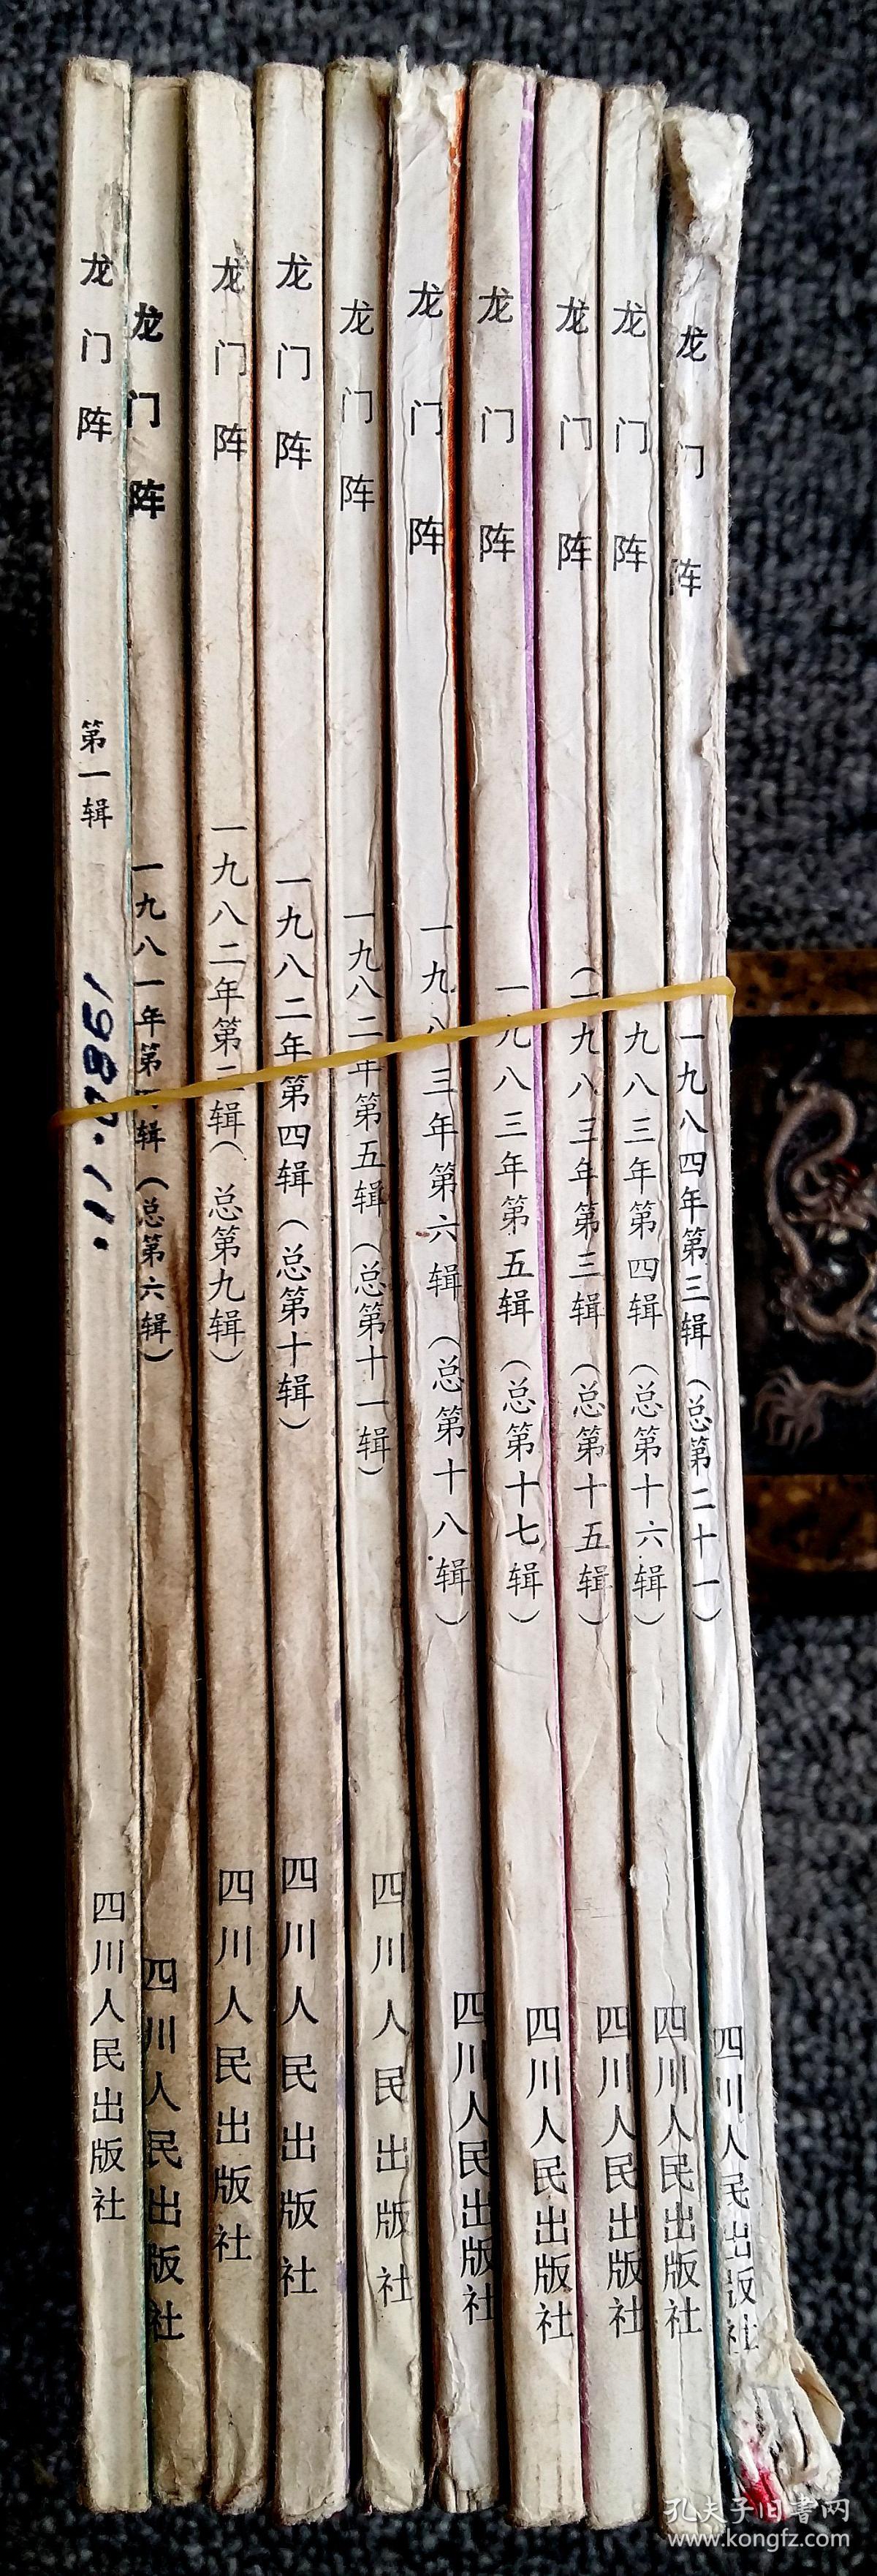 龙门阵 第一辑 四川人民出版社
1980.11.
龙门阵 一九八一年第 辑（总第六辑） 四川人民出版社
龙门阵 一九八二年第三辑（总第九辑） 四川人民出版社
龙门阵 一九八二年第四辑（总第十辑） 四川人民出版社
龙门阵 一九八二年第五辑（总第十一辑） 四川人民出版社
龙门阵 一九八三年第六辑（总第十八辑） 四川人民出版社
龙门阵 一九八三年第五辑（总第十七辑） 四川人民出版社
龙门阵 （一九八三年第三辑（总第十五辑） 四川人民出版社
龙门阵 九八三年第四辑（总第十六辑） 四川人民出版社
龙门阵 一九八四年第三辑（总第二十一） 四川人民出版社
孔夫子旧書网
www.kongfz.com